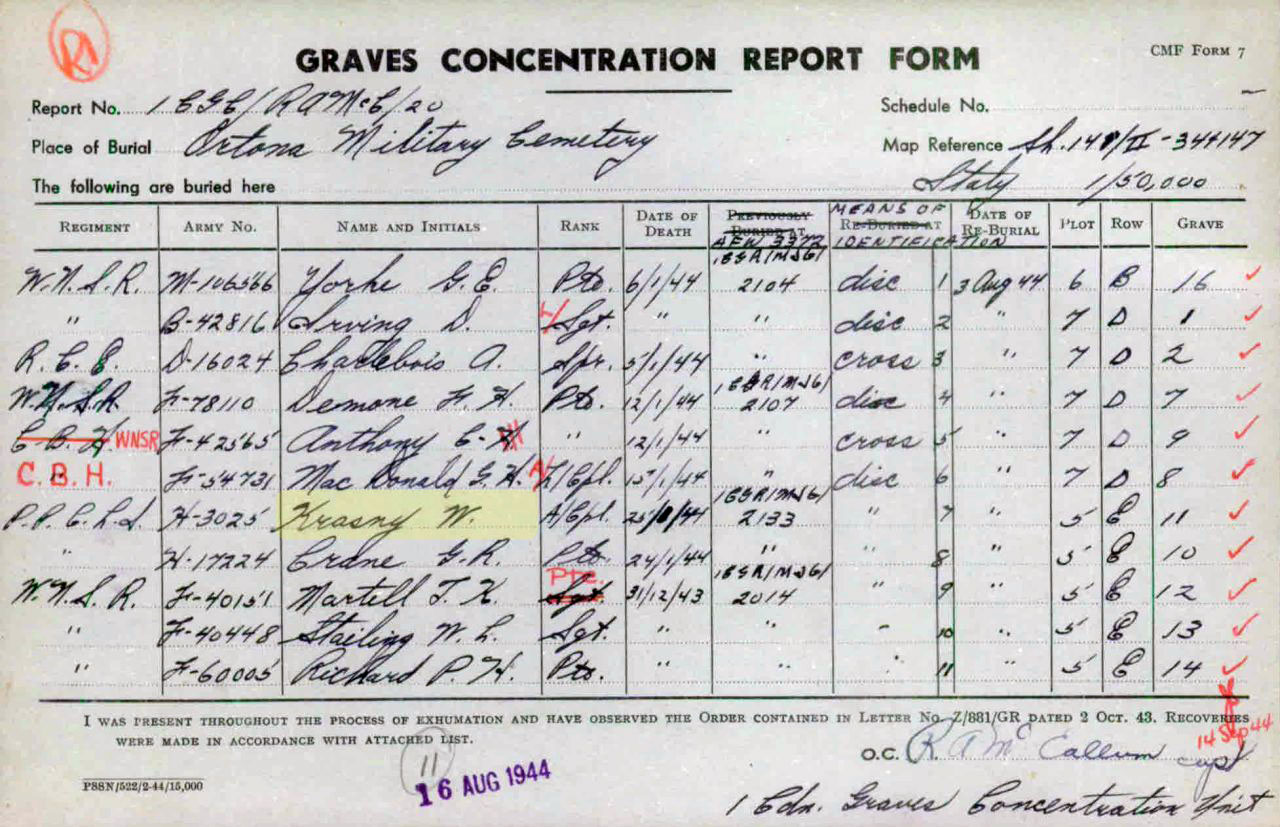 R1
GRAVES CONCENTRATION REPORT FORM
CMF Form 7
Report No. 1 CGC/RAMcC/20
Schedule No. –
Place of Burial Ortona Military Cemetery
Map Reference Sh. 147/II-344147
The following are buried here
Italy 1/50,000
Regiment Army No. Name and Initials Rank Date of Death Previously Buried at AFW 3372 Means of Re-Buried at Identification Date of Re-Burial Plot Row Grave
W.N.S.R. M-106566 Yorke G.E. Pte. 6/1/44 1BGR/MJG/ 2104 disc 1 3 Aug 44 6 B 16 ✓
" B-42816 Irving D. L/Sgt. " " disc 2 " 7 D 1 ✓
R.C.E. D-16024 Charlebois A. Spr. 5/1/44 " cross 3 " 7 D 2 ✓
W.N.S.R. F-78110 Demone F.H. Pte. 12/1/44 1BGR/MJG/ 2107 disc 4 " 7 D 7 ✓
C.B.H. WNSR F-42565 Anthony C. H " 12/1/44 cross 5 " 7 D 9 ✓
C.B.H. F-54731 MacDonald G.H. A/L/Cpl. 15/1/44 " disc 6 " 7 D 8 ✓
P.P.C.L.I. H-3025 Krasny W. A/Cpl. 25/1/44 1BGR/MJG/ 2133 " 7 " 5 E 11 ✓
" H-17224 Crane G.R. Pte. 24/1/44 " 8 " 5 E 10 ✓
W.N.S.R. F-40151 Martell J.K. Sgt. Pte. 31/12/43 1BGR/MJG/ 2014 " 9 " 5 E 12 ✓
" F-40448 Stailing W.L. Sgt. " " " 10 " 5 E 13 ✓
" F-60005 Richard P.H. Pte. " " " 11 " 5 E 14 ✓
I was present throughout the process of exhumation and have observed the Order contained in Letter No. Z/881/GR dated 2 Oct. 43. Recoveries
were made in accordance with attached list.
14 Sep 44
O.C. R A McCallum capt
11
16 AUG 1944
PSSN/522/2-44/15,000
1 Cdn. Graves Concentration Unit